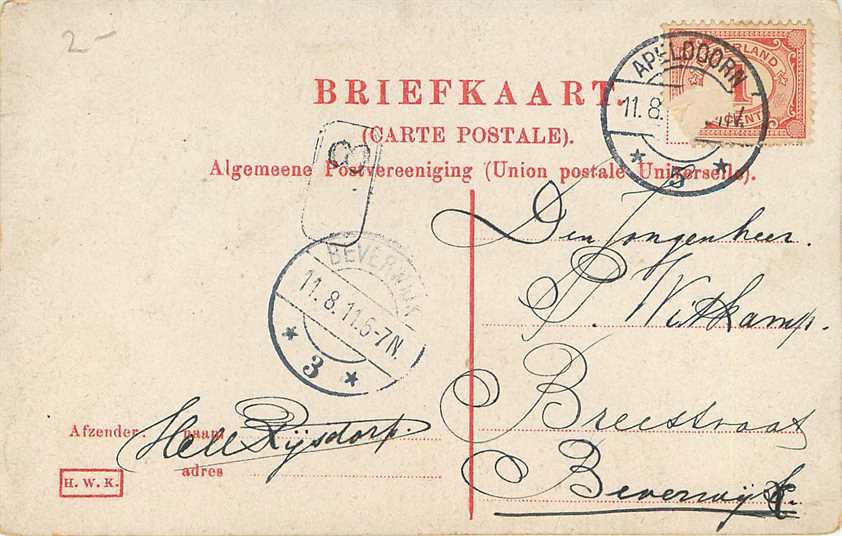 2-
NEDERLAND
1
CENT
APELDOORN
11.8.
5
BRIEFKAART.
(CARTE POSTALE).
Algemeene Postvereeniging (Union postale Universelle).
8
BEVERWIJK
11.8.11.6-7N.
3
Den Jongenheer.
P. Witkamp.
Breestraat
Beverwijk.
Afzender: naam
Rijsdorp.
adres
H. W. K.